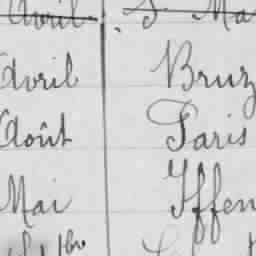 Avril S Ma
Avril Bruz
Août Paris
Mai Iffen